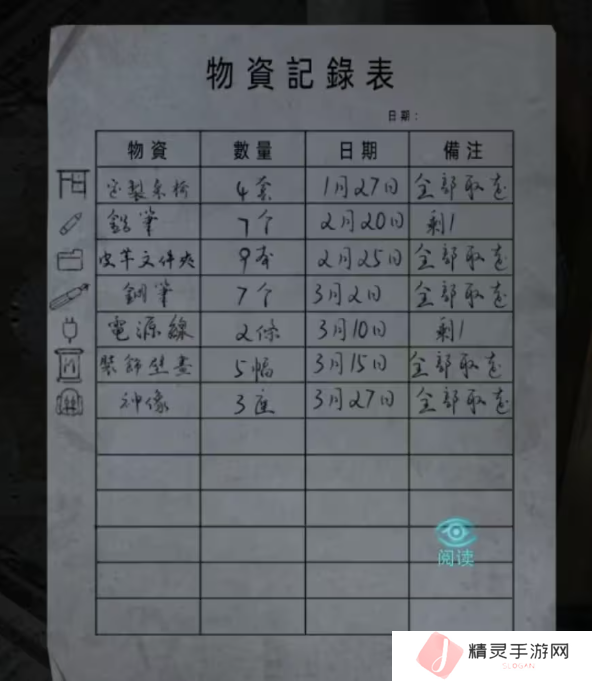 物資記錄表
日期：
物資 數量 日期 備注
定製桌椅 4套 1月27日 全部取走
鉛筆 7个 2月20日 剩1
皮革文件夾 9本 2月25日 全部取走
鋼筆 7个 3月2日 全部取走
電源線 2條 3月10日 剩1
裝飾壁畫 5幅 3月15日 全部取走
神像 3座 3月27日 全部取走
阅读
精灵手游网
SLOGAN